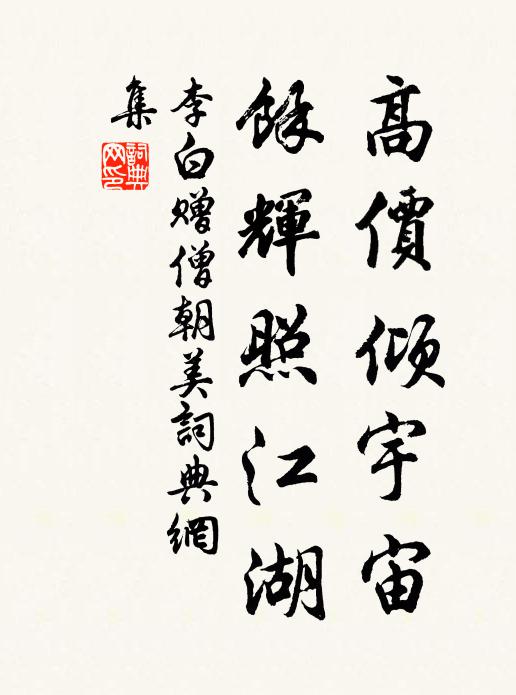 高價傾宇宙
餘輝照江湖
李白贈僧朝美詞典網
集
詞典網印